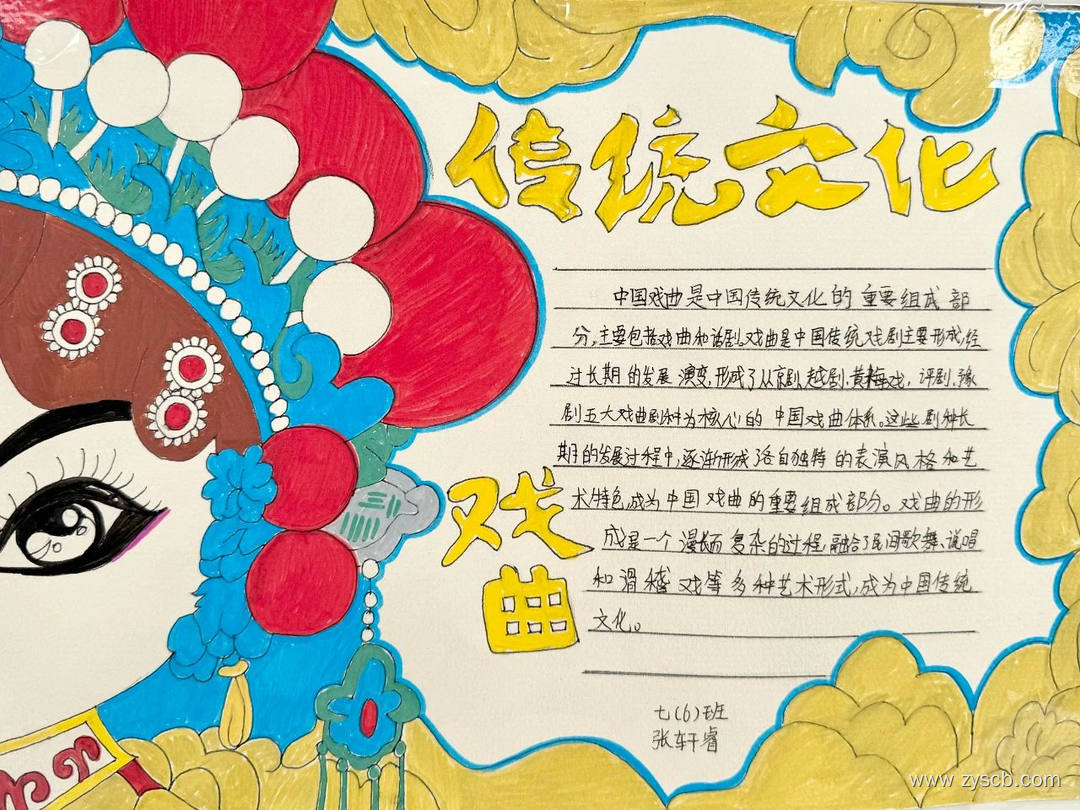 传统文化
戏曲
中国戏曲是中国传统文化的重要组成部
分,主要包括戏曲和话剧,戏曲是中国传统戏剧主要形成,经
过长期的发展演变,形成了以京剧、越剧、黄梅戏、评剧、豫
剧五大戏曲剧种为核心的中国戏曲体系。这些剧种长
期的发展过程中,逐渐形成了各自独特的表演风格和艺
术特色,成为中国戏曲的重要组成部分。戏曲的形
成是一个漫长而复杂的过程,融合了民间歌舞、说唱
和滑稽戏等多种艺术形式,成为中国传统
文化。
七(6)班
张轩睿
www.zyscb.com